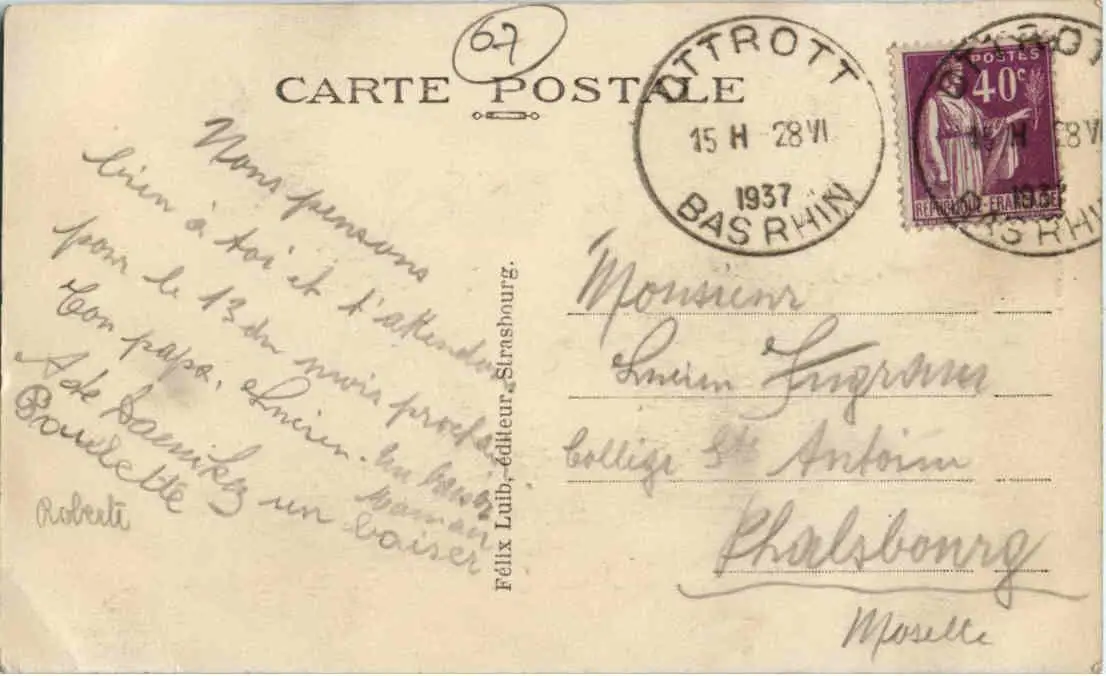 67
CARTE POSTALE
OTTROTT
15 H 28 VI
1937
BAS RHIN
POSTES
40c
REPUBLIQUE-FRANCAISE
OTTROTT
15 H 28 VI
1937
BAS RHIN
Nous pensons
bien à toi et t'attendons
pour le 13 du mois prochain
Ton papa, Lucien. Un baiser
Maman
un baiser
Paulette
Roberte
Félix Luib, éditeur, Strasbourg.
Monsieur
Lucien
Collège St Antoine
Phalsbourg
Moselle